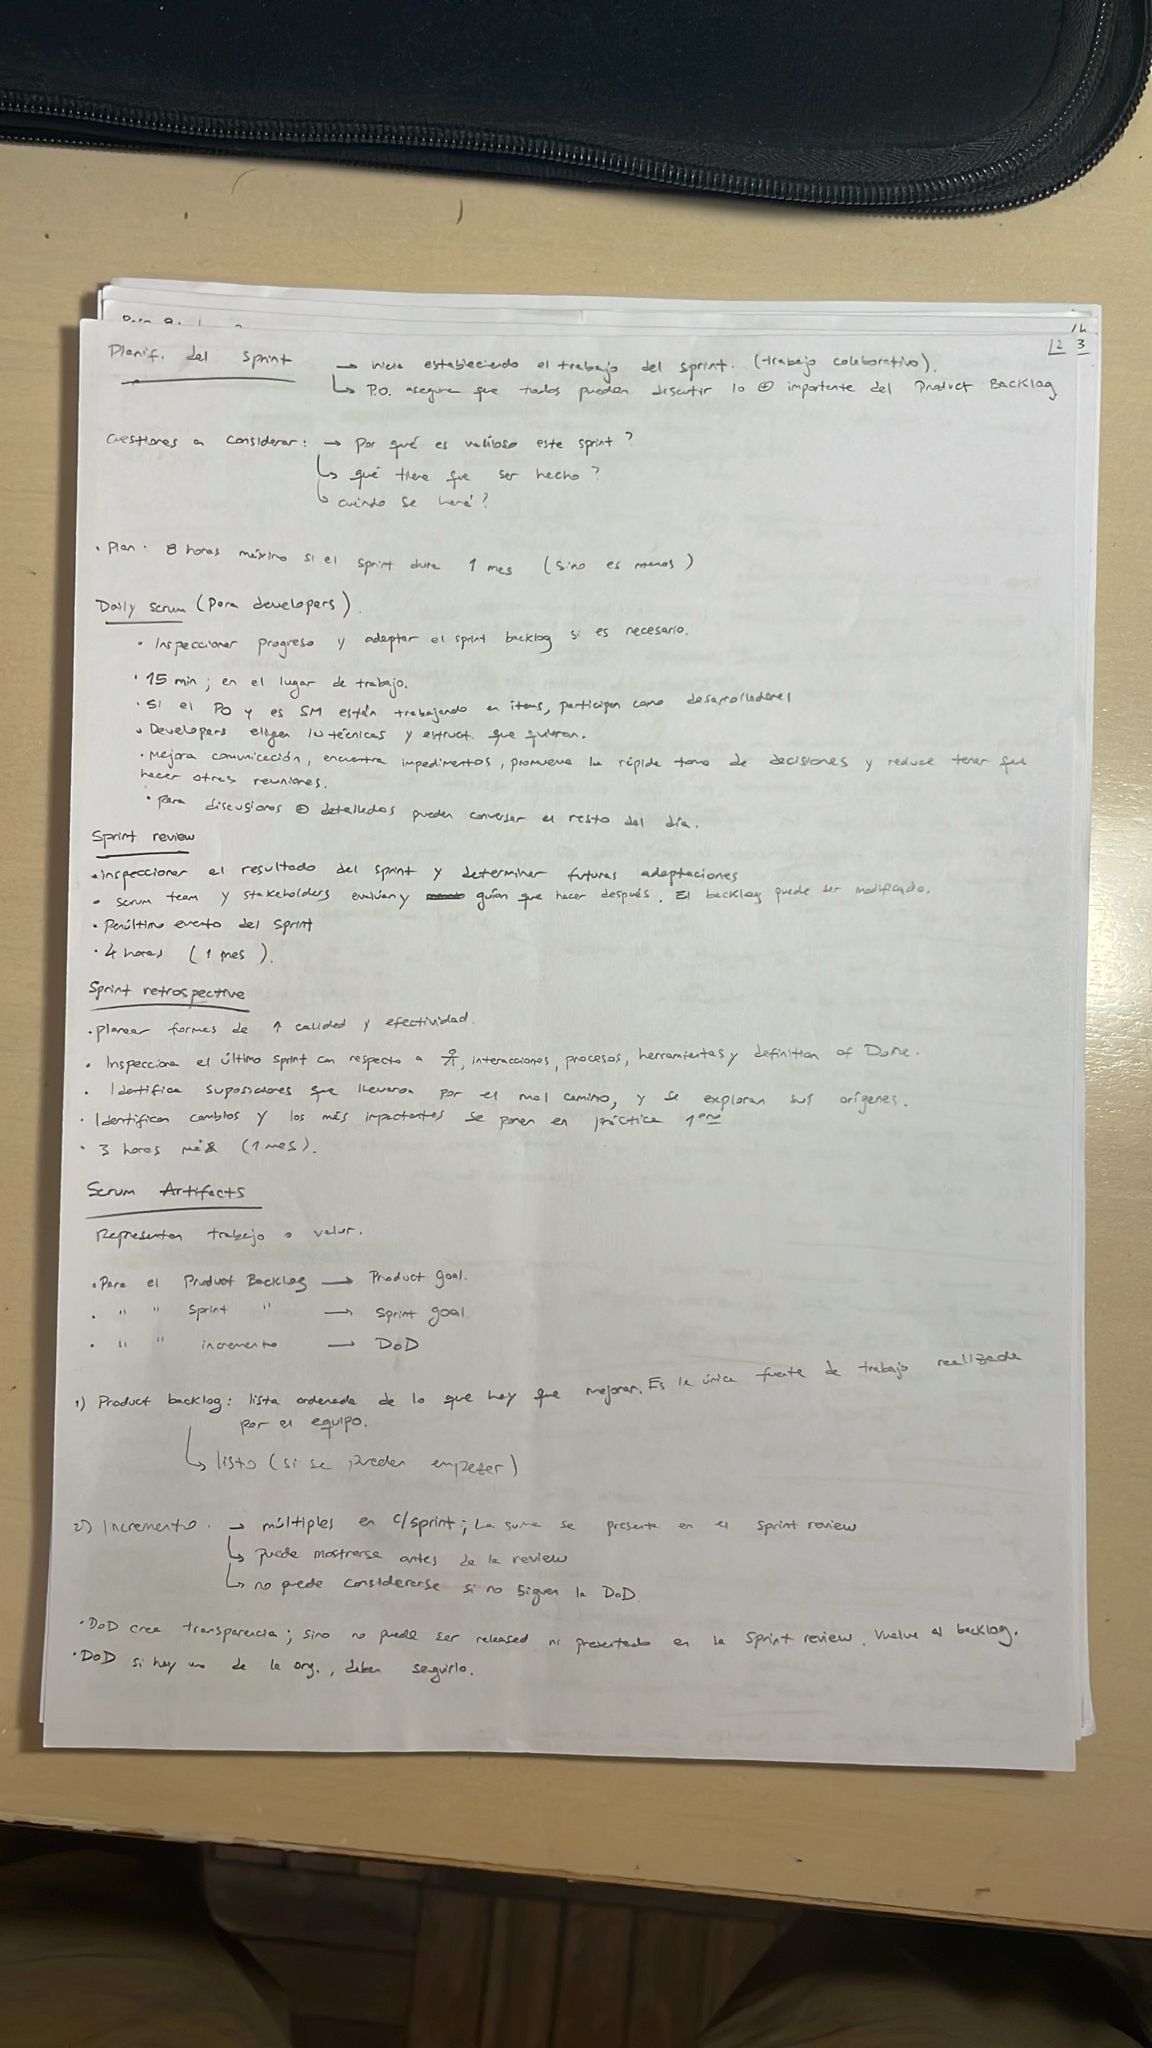 Planif. del Sprint → inicia estableciendo el trabajo del sprint. (trabajo colaborativo).
↳ P.O. asegura que todos pueden discutir lo ⊕ importante del Product Backlog
Cuestiones a considerar: → Por qué es valioso este sprint?
↳ qué tiene que ser hecho?
↳ cuándo se hará?
• Plan: 8 horas máximo si el sprint dura 1 mes (sino es menos)
Daily scrum (Para developers).
• Inspeccionar progreso y adaptar el sprint backlog si es necesario.
• 15 min; en el lugar de trabajo.
• Si el PO y es SM están trabajando en items, participan como desarrolladores
• Developers eligen las técnicas y estruct. que quieran.
• Mejora comunicación, encuentra impedimentos, promueve la rápida toma de decisiones y reduce tener que
hacer otras reuniones.
• Para discusiones ⊕ detalladas pueden conversar el resto del día.
Sprint review
• Inspeccionar el resultado del sprint y determinar futuras adaptaciones
• Scrum team y stakeholders evalúan y guían que hacer después. El backlog puede ser modificado.
• Penúltimo evento del sprint
• 4 horas (1 mes).
Sprint retrospective
• Planear formas de ↑ calidad y efectividad.
• Inspecciona el último sprint con respecto a , interacciones, procesos, herramientas y definition of Done.
• Identifica suposiciones que llevaron por el mal camino, y se exploran sus orígenes.
• Identifican cambios y los más impactantes se ponen en práctica 1ero
• 3 horas máx (1 mes).
Scrum Artifacts
Representan trabajo o valor.
• Para el Product Backlog → Product goal.
• " " Sprint " → Sprint goal
• " " incremento → DoD
1) Product backlog: lista ordenada de lo que hay que mejorar. Es la única fuente de trabajo realizada
por el equipo.
↳ listo (si se pueden empezar)
2) Incremento. → múltiples en c/sprint; La suma se presenta en el sprint review
↳ puede mostrarse antes de la review
↳ no puede considerarse si no siguen la DoD.
• DoD crea transparencia; sino no puede ser released ni presentado en la Sprint review. Vuelve al backlog.
• DoD si hay una de la org., deben seguirlo.